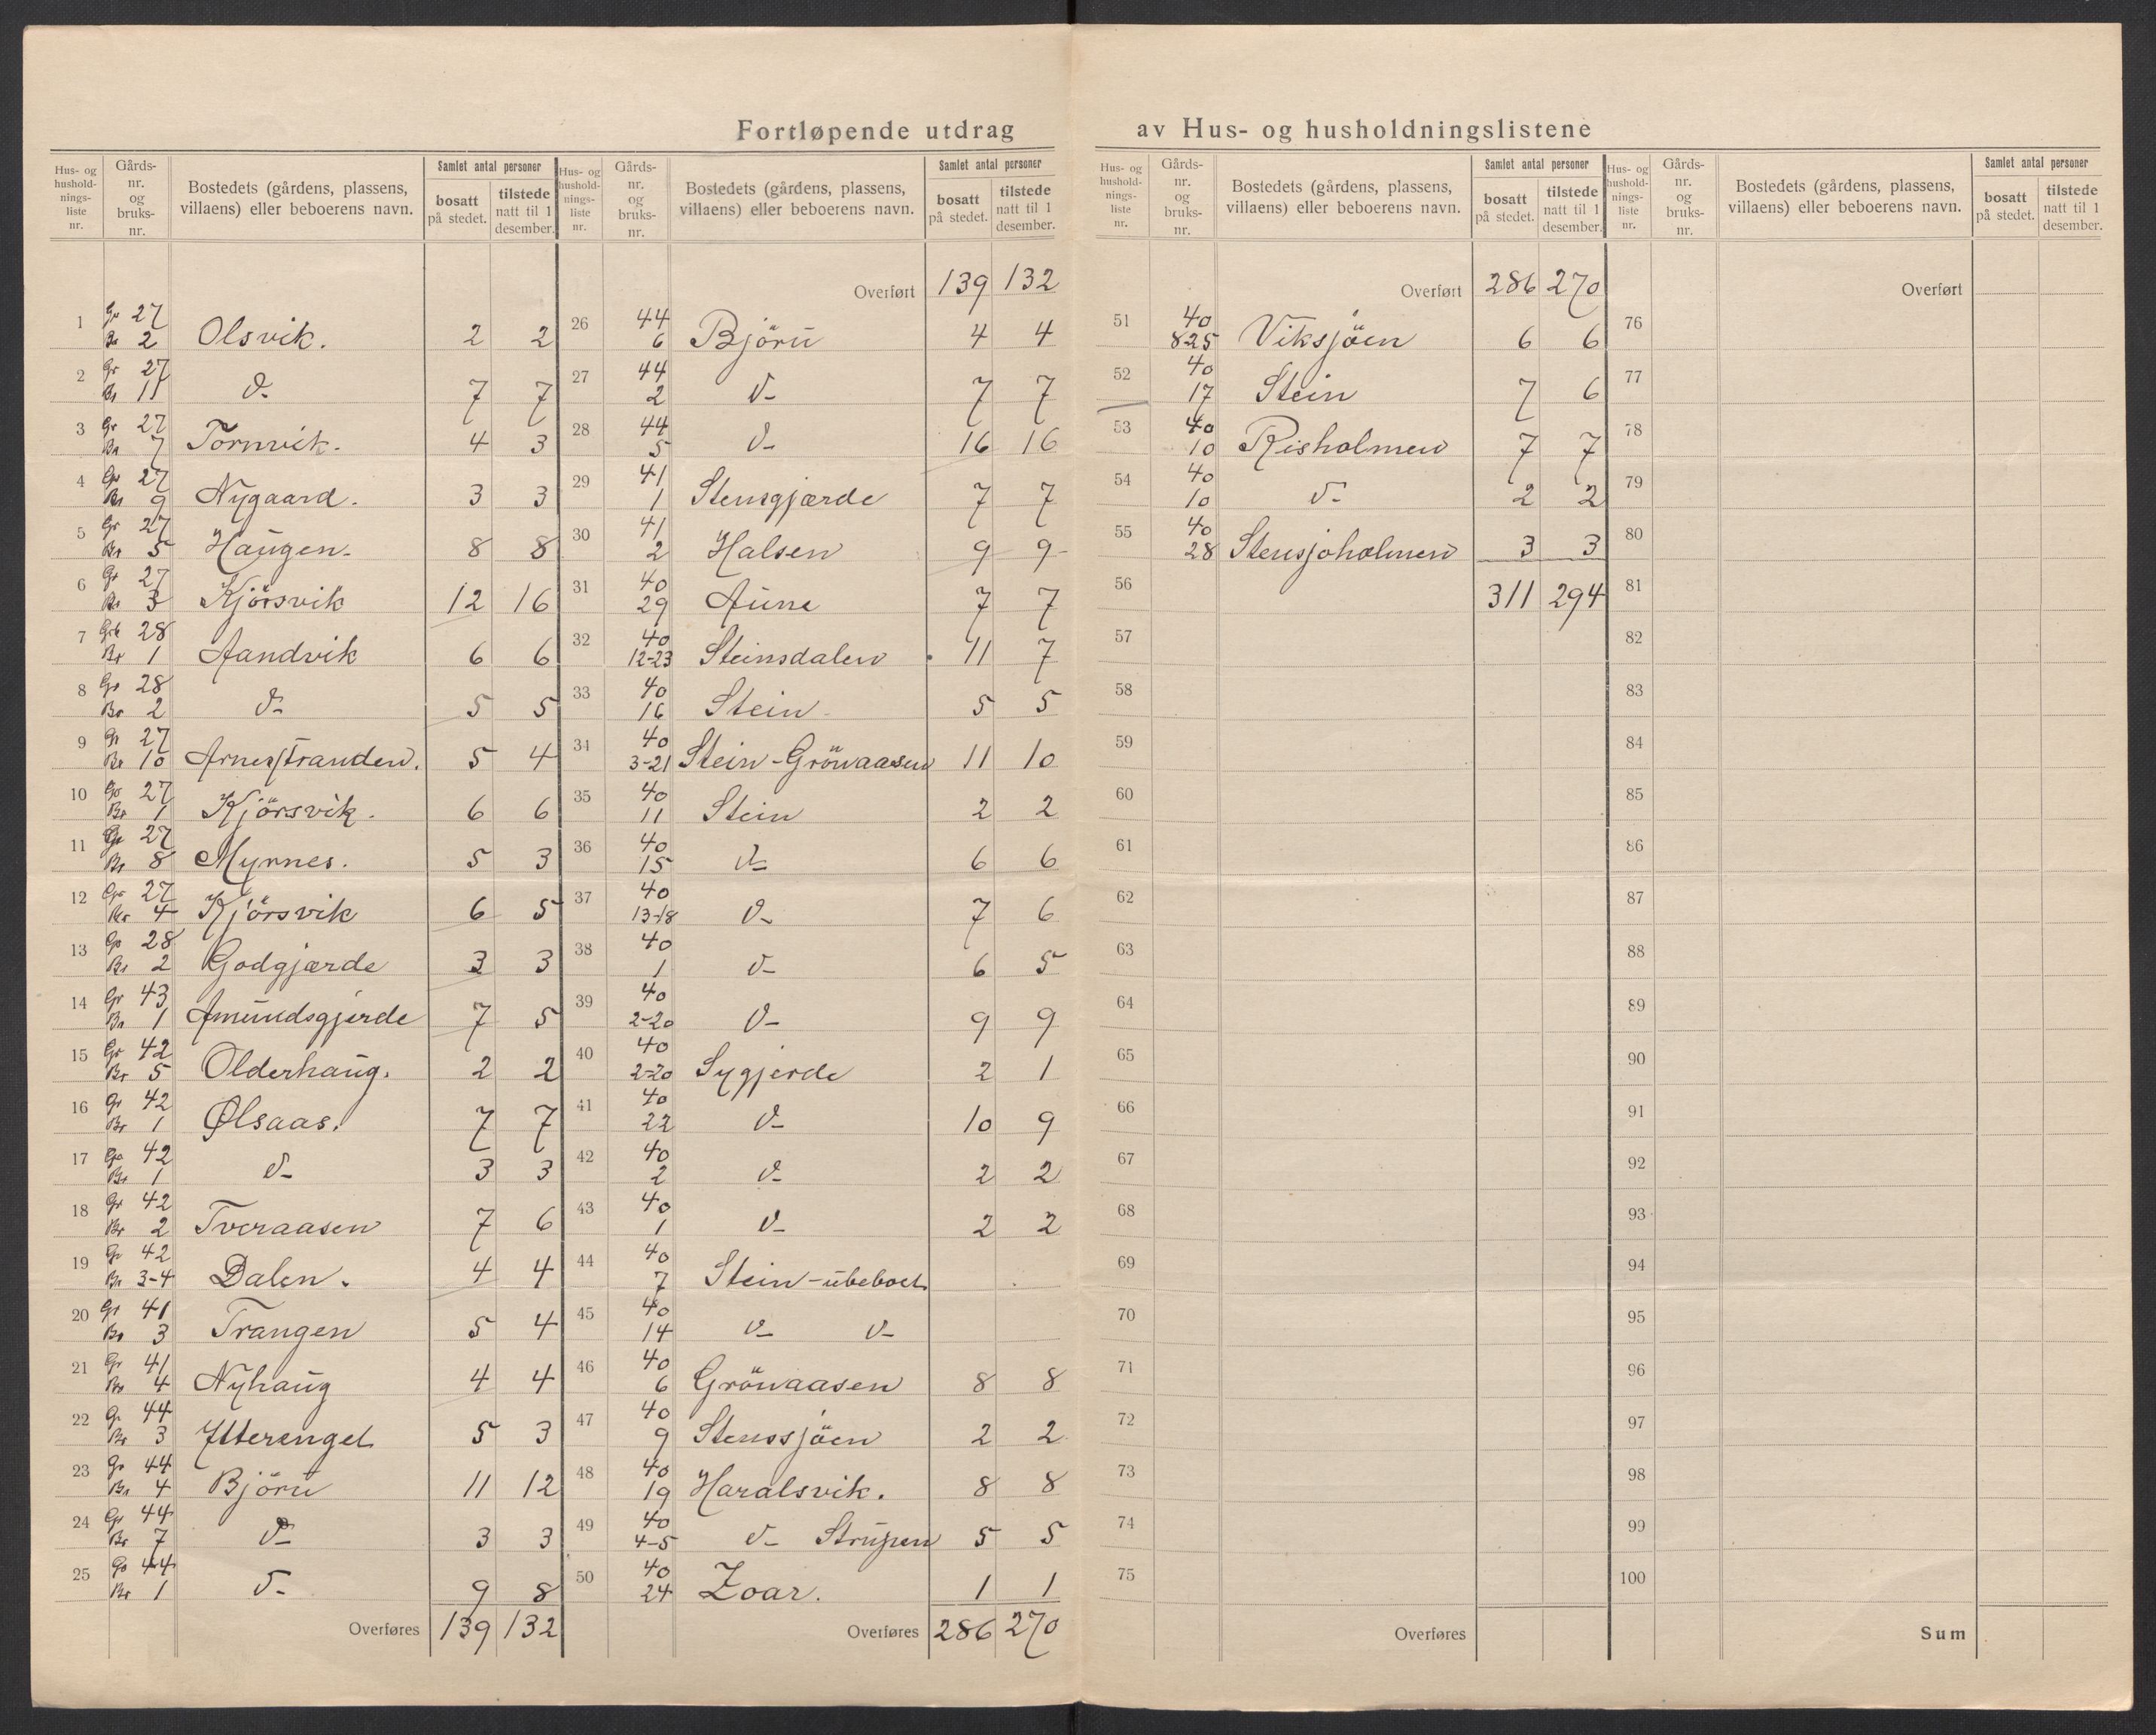 Fortløpende utdrag av Hus- og husholdningslistene
Hus- og hushold-nings-liste nr. | Gårds-nr. og bruks-nr. | Bostedets (gårdens, plassens, villaens) eller beboerens navn. | Samlet antal personer | bosatt på stedet. | tilstede natt til 1 desember.
1 Gr 27 Br 2 Olsvik. 2 2
2 Gr 27 Br 11 d- 7 7
3 Gr 27 Br 7 Tornvik. 4 3
4 Gr 27 Br 9 Nygaard. 3 3
5 Gr 27 Br 5 Haugen- 8 8
6 Gr 27 Br 3 Kjörsvik 12 16
7 Gr 28 Br 1 Aandvik 6 6
8 Gr 28 Br 2 d- 5 5
9 Gr 27 Br 10 Arnesstranden. 5 4
10 Gr 27 Br 1 Kjörsvik. 6 6
11 Gr 27 Br 8 Myrnes. 5 3
12 Gr 27 Br 4 Kjörsvik 6 5
13 Gr 28 Br 2 Godgjærde 3 3
14 Gr 43 Br 1 Amundsgjerde 7 5
15 Gr 42 Br 5 Olderhaug. 2 2
16 Gr 42 Br 1 Ølsaas. 7 7
17 Gr 42 Br 1 d- 3 3
18 Gr 42 Br 2 Tveraasen 7 6
19 Gr 42 Br 3-4 Dalen. 4 4
20 Gr 41 Br 3 Trangen 5 4
21 Gr 41 Br 4 Nyhaug 4 4
22 Gr 44 Br 3 Ytterenget 5 3
23 Gr 44 Br 4 Björn 11 12
24 Gr 44 Br 7 d- 3 3
25 Gr 44 Br 1 d- 9 8
Overføres 139 132
Hus- og hushold-nings-liste nr. | Gårds-nr. og bruks-nr. | Bostedets (gårdens, plassens, villaens) eller beboerens navn. | Samlet antal personer | bosatt på stedet. | tilstede natt til 1 desember.
Overført 139 132
26 44 6 Björn 4 4
27 44 2 d- 7 7
28 44 5 d- 16 16
29 41 1 Stensgjærde 7 7
30 41 2 Halsen 9 9-
31 40 29 Aune 7 7
32 40 12-23 Steinsdalen 11 7
33 40 16 Stein- 5 5
34 40 3-21 Stein-Grönaasen 11 10
35 40 11 Stein 2 2
36 40 15 d- 6 6
37 40 13-18 d- 7 6
38 40 1 d- 6 5
39 40 2-20 d- 9 9
40 40 2-20 Sygjerde 2 1
41 40 22 d- 10 9
42 40 2 d- 2 2
43 40 1 d- 2 2
44 40 7 Stein-ubeboet
45 40 14 d- d-
46 40 6 Grönaasen 8 8
47 40 9 Stenssjöen 2 2
48 40 19 Haralsvik. 8 8
49 40 4-5 d- Strupen 5 5
50 40 24 Zoar. 1 1
Overføres 286 270
Hus- og hushold-nings-liste nr. | Gårds-nr. og bruks-nr. | Bostedets (gårdens, plassens, villaens) eller beboerens navn. | Samlet antal personer | bosatt på stedet. | tilstede natt til 1 desember.
Overført 286 270
51 40 825 Viksjöen 6 6
52 40 17 Stein 7 6
53 40 10 Risholmen 7 7
54 40 10 d- 2 2
55 40 28 Stensjoholmen 3 3
56 311 294
57
58
59
60
61
62
63
64
65
66
67
68
69
70
71
72
73
74
75
Overføres
Hus- og hushold-nings-liste nr. | Gårds-nr. og bruks-nr. | Bostedets (gårdens, plassens, villaens) eller beboerens navn. | Samlet antal personer | bosatt på stedet. | tilstede natt til 1 desember.
Overført
76
77
78
79
80
81
82
83
84
85
86
87
88
89
90
91
92
93
94
95
96
97
98
99
100
Sum